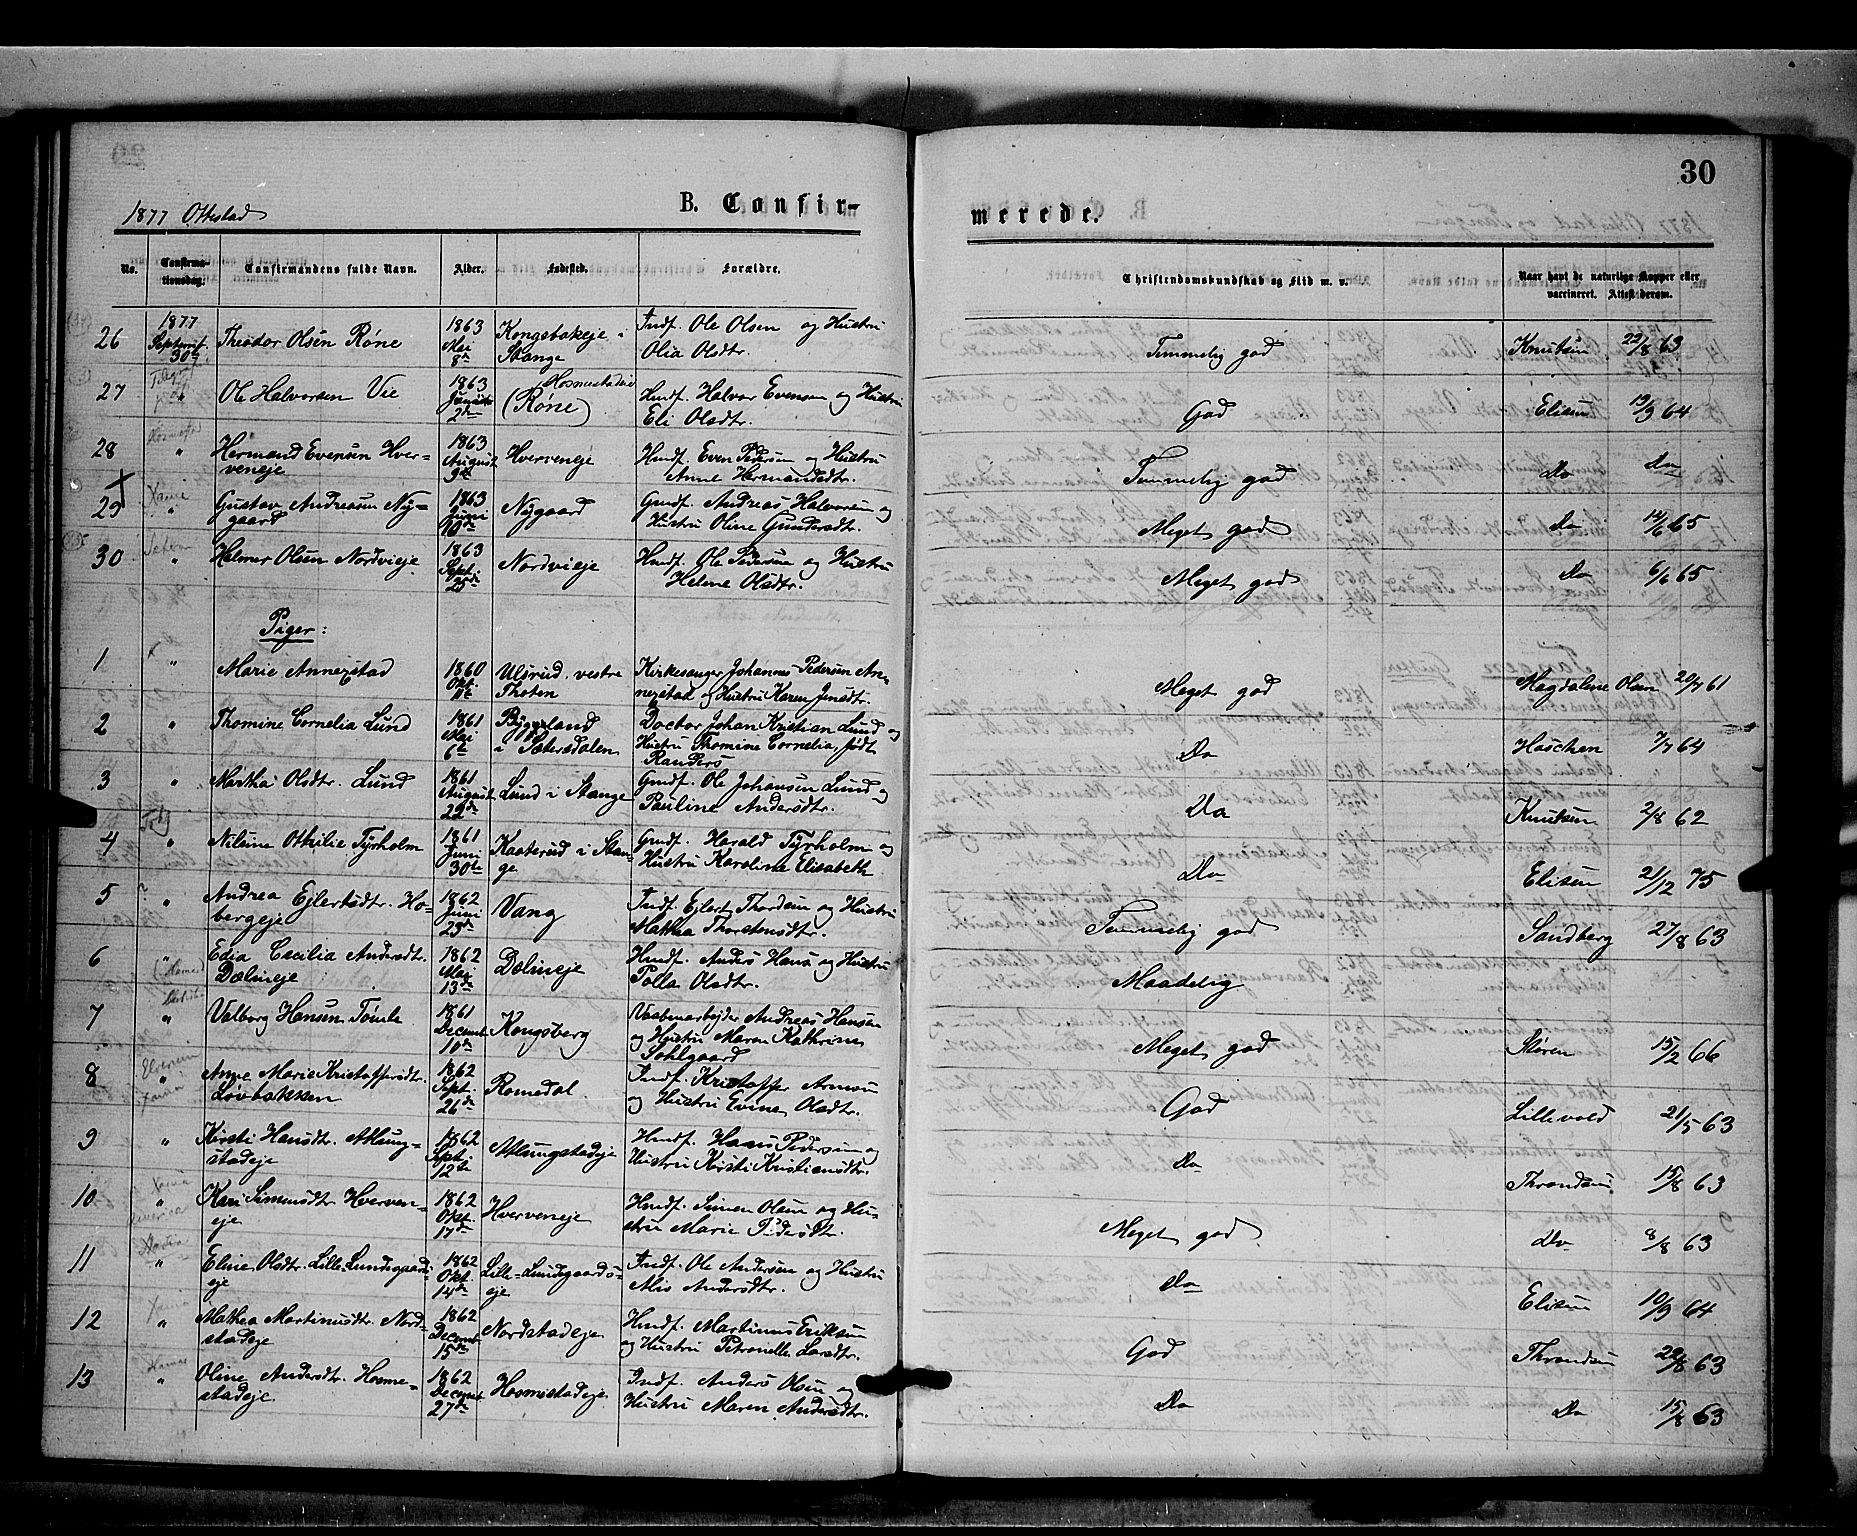 30
1877 Ottestad
B. Confir-
merede.
No.
Confirma-
tionsdag.
Confirmandens fulde Navn.
Alder.
Fødested.
Forældre.
Christendomskundskab og Flid m. v.
Naar havt de naturlige Kopper eller
vaccineret. Attest derom.
26 1877 Septembr 30te Theodor Olsen Røne 1863 Mai 8de Kongsbakeje i Stange Indf. Ole Olsen og Hustru Olia Olsdtr. Temmelig god Knutsen 22/8 63
27 " Ole Halvorsen Vie 1863 2den Hosmestadeie (Røne) Husf. Halvor Evensen og Hustru Eli Olsdtr. God Elisen 19/9 64
28 " Hermand Evensen Hver-
veneje 1863 August 9de Hverveneje Husf. Even Pedersen og Hustru
Anne Hermandsdtr. Temmelig god Do Do
29 " Gustav Andreasen Ny-
gaard 1863 Juni 10de Nygaard Grdf. Andreas Halvorsen og
Hustru Oline Gundersdtr. Meget god Do 14/6 65
30 " Helmer Olsen Nordvieje 1863 Sept. 25de Nordvieje Husf. Ole Pedersen og Hustru
Helene Olsdtr. Meget god Do 6/6 65
Piger:
1 " Marie Annexstad 1860 Okt. Ulsrud, vestre
Thoten Kirkesanger Johannes Pedersen An-
nexstad og Hustru Karen Jensdtr. Meget god Magdalene Olsen 20/7 61
2 " Thomine Cornelia Lund 1861 Mai 6te Bygland
i Sætersdalen Doctor Johan Kristian Lund og
Hustru Thomine Cornelia, født
Randers Do Haschen 7/7 64
3 " Martha Olsdtr. Lund 1861 August 22de Lund i Stange Grdf. Ole Johansen Lund og
Pauline Andersdtr. Do Knutsen 2/8 62
4 " Nilsine Othilie Tyrholm 1861 Juni 30te Kaaterud i Stan-
ge Grdf. Harald Tyrholm og
Hustru Karoline Elisabeth Do Elisen 21/12 75
5 " Andrea Ejlertsdtr. Ho-
bergeje 1862 Juni 23de Vang Indf. Ejlert Thordsen og Hustru
Mathea Thorstensdtr. Temmelig god Sandberg 27/8 63
6 " Edia Cecilia Andersdtr.
Dælineje 1862 Mai 13de Dælineje Husf. Anders Hans og Hustru
Polla Olsdtr. Maadelig
7 " Valborg Hansen Tomle 1861 Decembr 10de Kongsberg Vaabenarbejder Andreas Hansen
og Hustru Maren Kathrine
Sohlgaard Meget god Støren 15/2 66
8 " Anne Marie Kristoffersdtr.
Løvbakken 1862 Sept. 26de Romedal Indf. Kristoffer Arnesen
og Hustru Evine Olsdtr. God Lillevold 21/5 63
9 " Kirsti Hansdtr. Atlung-
stadeje 1862 Sept. 12te Atlungstadeje Husf. Hans Pedersen og
Hustru Kirsti Kristiansdtr. Do Throndsen 15/8 63
10 " Kari Simensdtr. Hverven-
eje 1862 Okt. 17de Hverveneje Husf. Simen Olsen og Hu-
stru Marie Pedersdtr. Meget god Do 8/8 63
11 " Eline Olsdtr. Lille Lundsgaards-
eje 1862 Okt. 14de Lille-Lundsgaards-
eje Indf. Ole Andersen og Hustru
Alis Andersdtr. Do Elisen 19/9 64
12 " Mathea Martinusdtr. Nord-
stadeje 1862 Decembr 15de Nordstadeje Husf. Martinus Eriksen
og Hustru Petronelle Larsdtr. God Throndsen 22/8 63
13 " Oline Andersdtr. Hosme-
stadeje 1862 Decembr 27de Hosmestadeje Indf. Anders Olsen og
Hustru Maren Andersdtr. Do Do 15/8 63